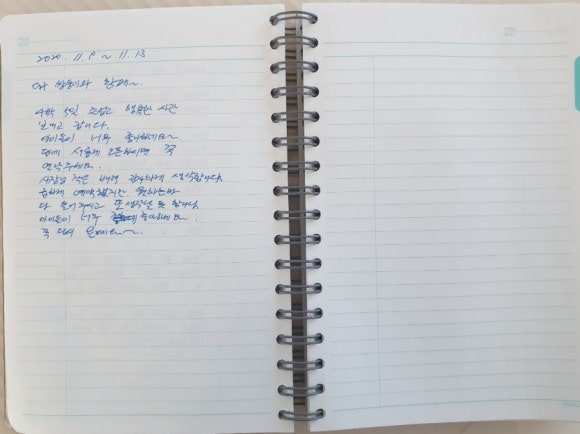 2020. 11. 9 ~ 11. 13
쌍둥이와 함께~
4박 5일 즐겁고 행복한 시간
보내고 갑니다.
아이들이 너무 좋아하네요~
담에 서울에 오픈하시면 꼭
연락주세요.
사장님 작은 배려 감사하게 생각합니다.
급하게 예약했지만
다 들어주시고 또 생각날 듯 합니다.
아이들이 너무 좋아하네요.
꼭 다시 올께요~~